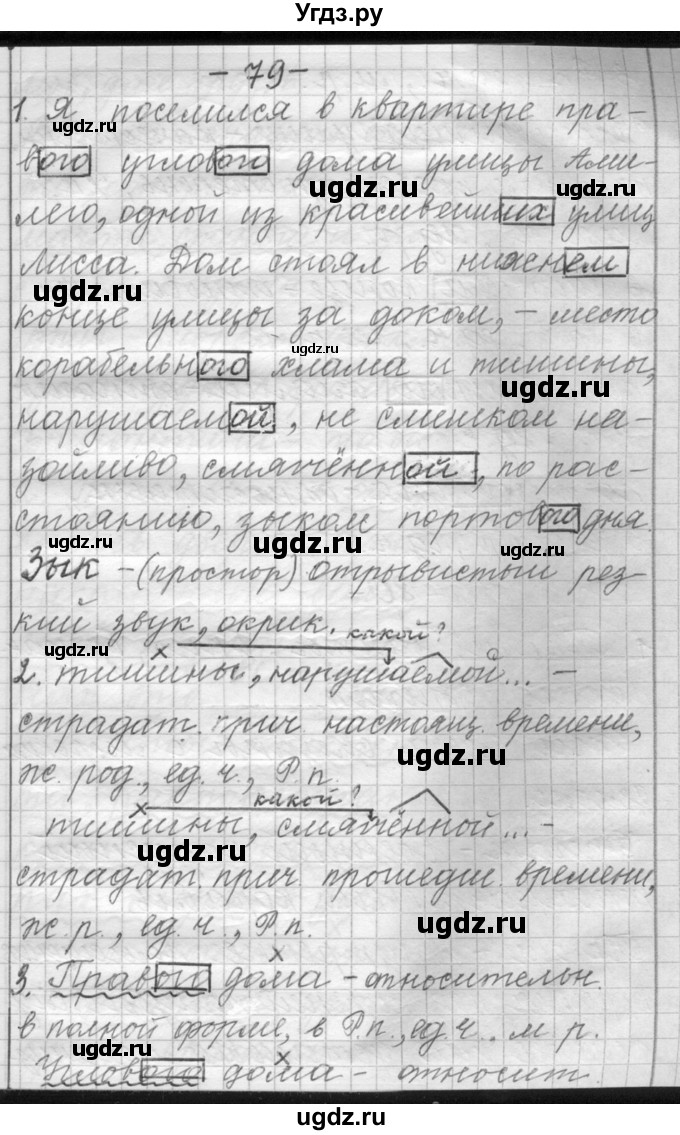 Угдз.ру
- 79 -
1. Я поселился в квартире пра-
вого углового дома улицы Ами-
лего, одной из красивейших улиц
Лисса. Дом стоял в нижнем
конце улицы за доком, - место
корабельного хлама и тишины,
нарушаемой, не слишком на-
зойливо, смягчённой, по рас-
стоянию, зыком портового дня.
Зык - (простор) отрывистый рез-
кий звук, окрик.
какой?
2. тишины, нарушаемой... -
страдат. прич. настоящ. времени,
ж. род., ед. ч., Р.п.
какой?
тишины, смягчённой... -
страдат. прич. прошедш. времени,
ж. р., ед. ч., Р.п.
3. Правого дома - относительн.
в полной форме, в Р.п., ед. ч. м р.
Углового дома - относит.
ugdz.ru